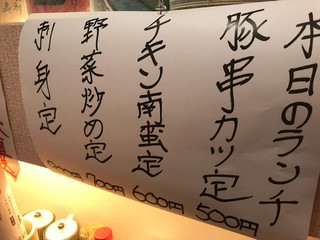 本日のランチ
豚串カツ定 500円
チキン南蛮定 600円
野菜炒め定 700円
刺身定